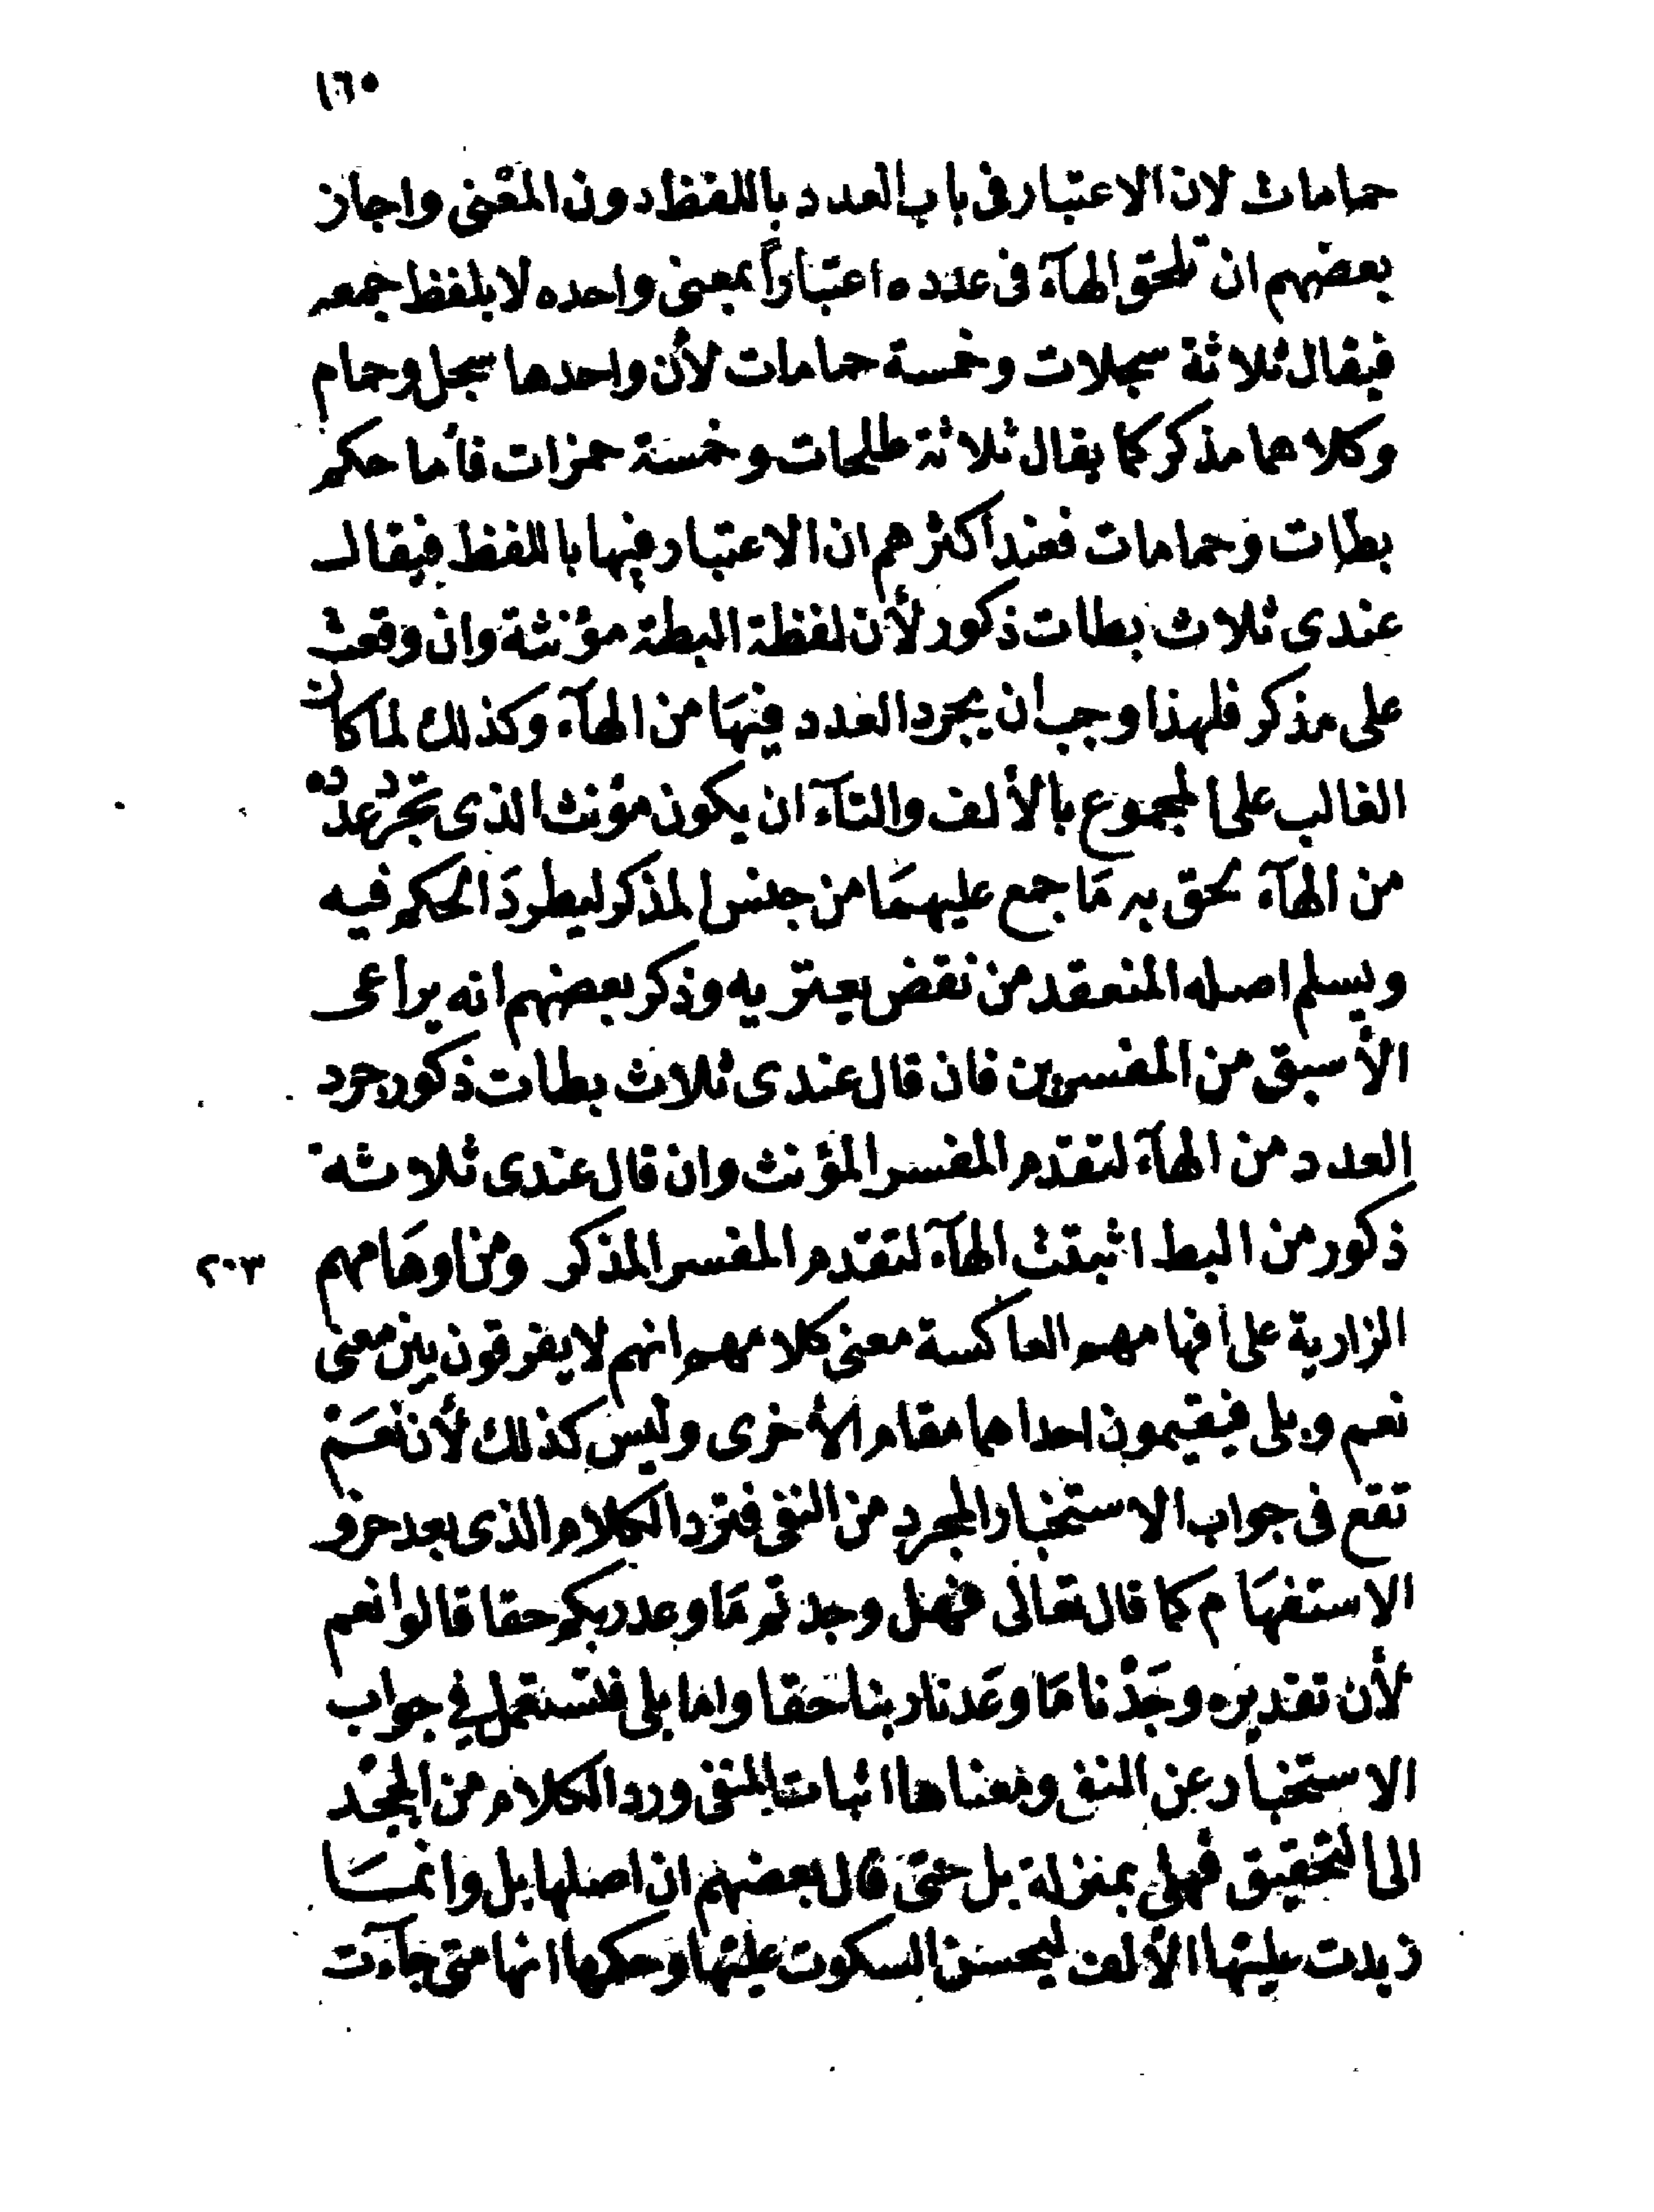 ١٦٠
حمامات لان الاعتبار فى باب العدد باللفظ دون المعْنى واجاز
بعضهم ان تلحق الهآء فى عدده اعتباراً بمعنى واحده لا بلفظ جمعه
فيقال ثلاثة سجلات وخمسة حمامات لأن واحدها سجل وحمام
وكلاهما مذكر كما يقال ثلاثة طلحات وخمسة حمزات فأما حكم
بطات وحمامات فعند اكثرهم ان الاعتبار فيها باللفظ فيقال
عندى ثلاث بطات ذكور لأن لفظة البطة مؤنثة وان وقعت
على مذكر فلهذا وجب أن يجرد العدد فيهَا من الهآء وكذلك لما كان
الغالب على المجموع بالألف والتآء ان يكون مؤنث الذى تجرد عدده
من الهآء لحق به مَا جمع عليهمَا من جنس المذكر ليطردَ الحكم فيه
ويسلم اصله المنعقد من نقض يعتريه وذكر بعضهم انه يراعى
الأسبق من المفسرين فان قال عندى ثلاث بطات ذكور جرد
العدد من الهآء لتقدم المفسر المؤنث وان قال عندى ثلاثة
ذكور من البط اثبتت الهآء لتقدم المفسر المذكر ومن اوهَامهم
٢٠٣
الزارية على افهامهم العاكسة معنى كلامهم انهم لا يفرقون بين معنى
نعم وبلى فيقيمون احداهما مقام الأخرى وليس كذلك لأن نعَمْ
تقع فى جواب الاستخبار المجرد من النفى فترد الكلام الذى بعد حرف
الاستفهَام كما قال تعَالى فهل وجدتم مَا وعد ربكم حقا قالوا نعم
لأن تقديره وجَدْنا مَا وعَدنا ربنا حقا واما بلى فتستعمل في جواب
الاستخبار عن النفى ومعناها اثبات المنفى ورد الكلام من الجحْد
الى التحقيق فهى بمنزلة بل حتى قال بعضهم ان اصلها بل وانمَا
زيدت عليها الألف ليحسن السكوت عليها وحكمها انها متى جآءت